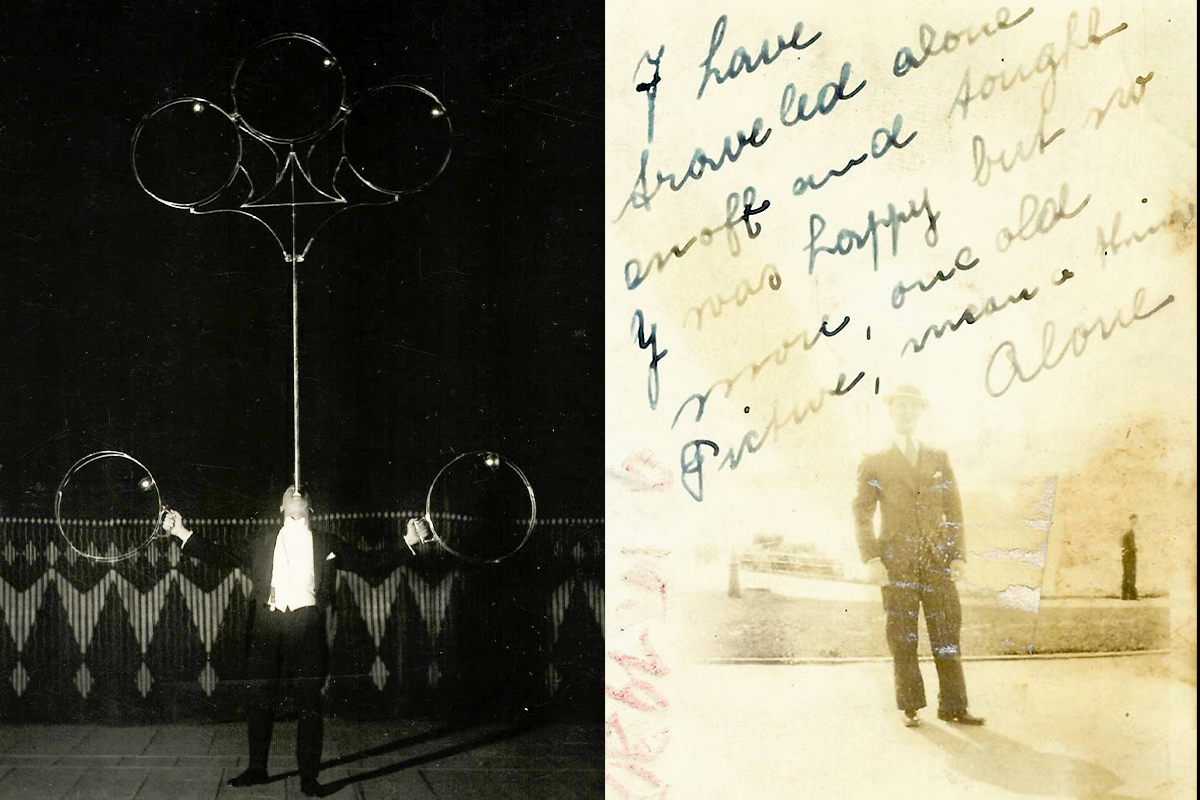 I have
traveled alone
enoff and tought
I was happy but no
more, one old
Picture, mean a thing
Alone